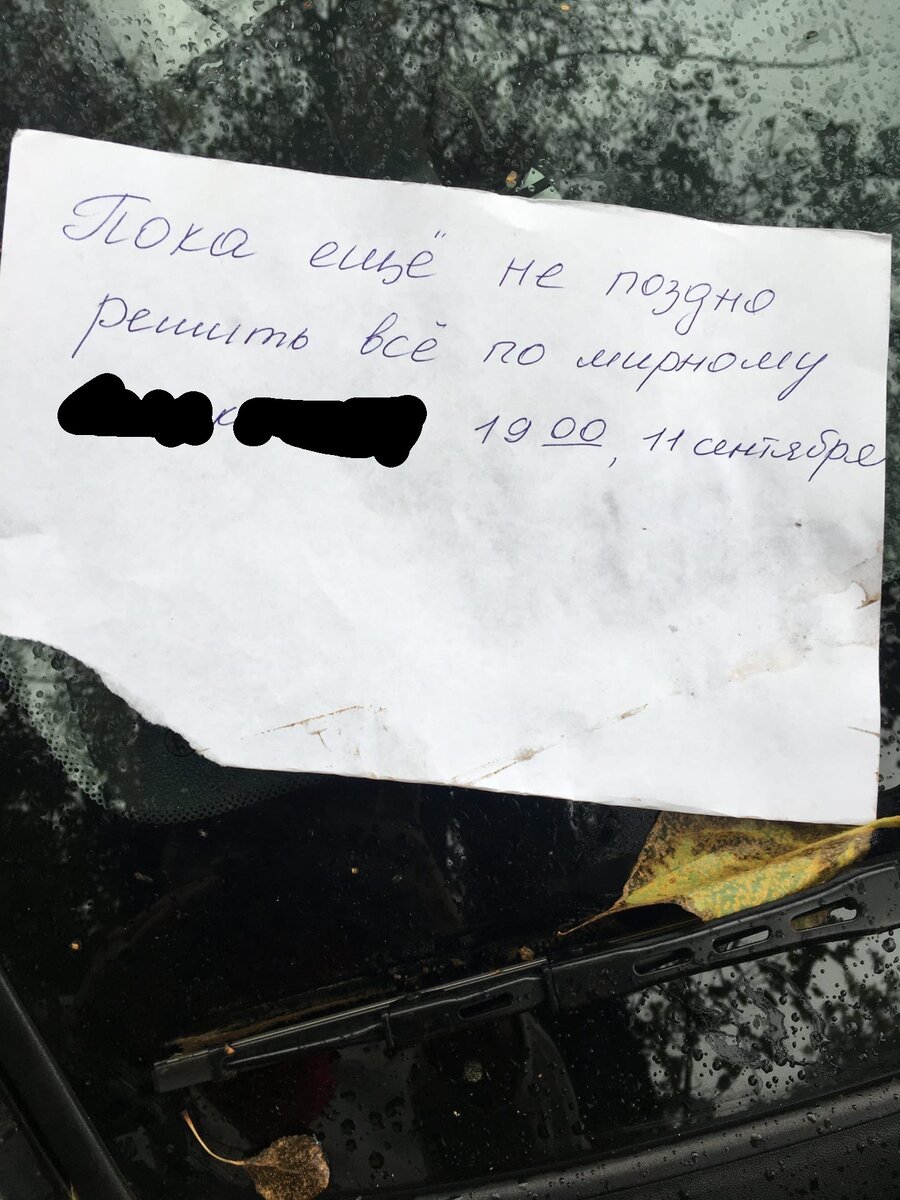 Пока ещё не поздно
решить всё по мирному
19 00, 11 сентября